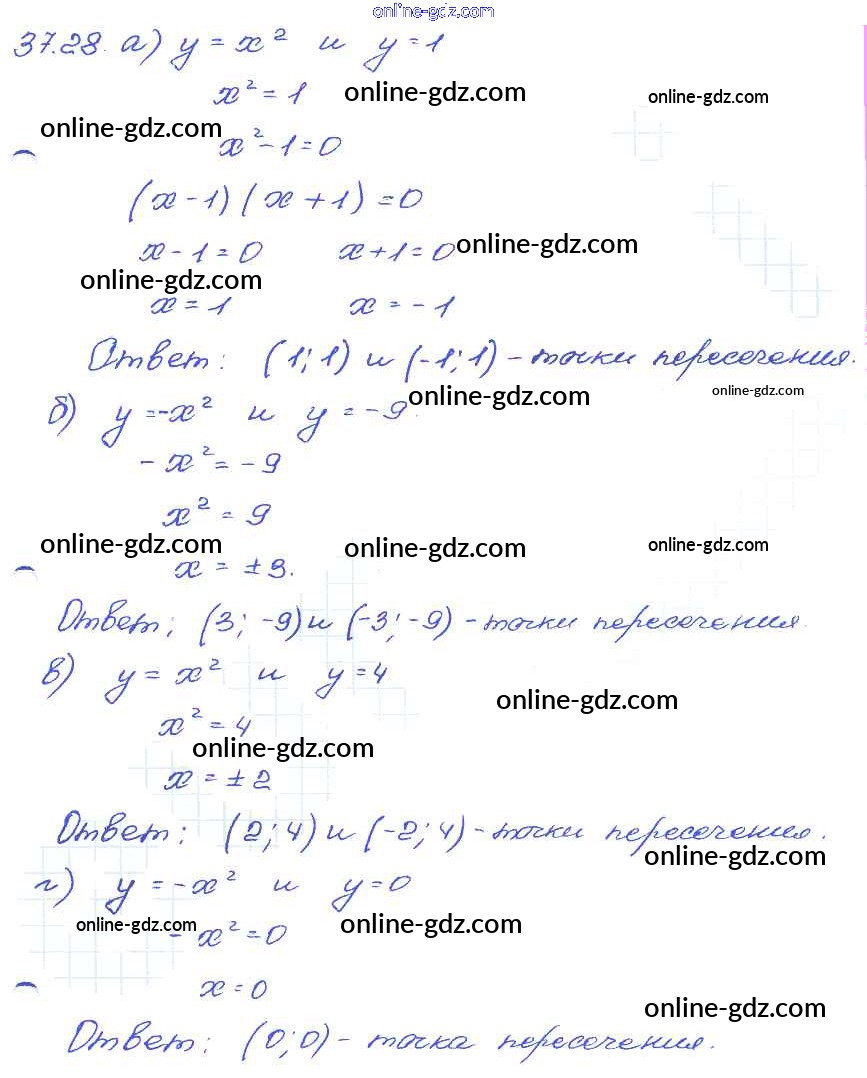 online-gdz.com
37.28. а) y = x² и y = 1
x² = 1 online-gdz.com online-gdz.com
online-gdz.com
x² - 1 = 0
(x - 1)(x + 1) = 0
x - 1 = 0 x + 1 = 0 online-gdz.com
online-gdz.com
x = 1 x = - 1
Ответ: (1; 1) и (-1; 1) - точки пересечения.
online-gdz.com online-gdz.com
б) y = -x² и y = -9.
- x² = - 9
x² = 9
online-gdz.com online-gdz.com online-gdz.com
x = ±3.
Ответ: (3; -9) и (-3; -9) - точки пересечения.
в) y = x² и y = 4
online-gdz.com
x² = 4
online-gdz.com
x = ± 2
Ответ: (2; 4) и (-2; 4) - точки пересечения.
online-gdz.com
г) y = -x² и y = 0
online-gdz.com online-gdz.com
- x² = 0
x = 0
online-gdz.com
Ответ: (0; 0) - точка пересечения.